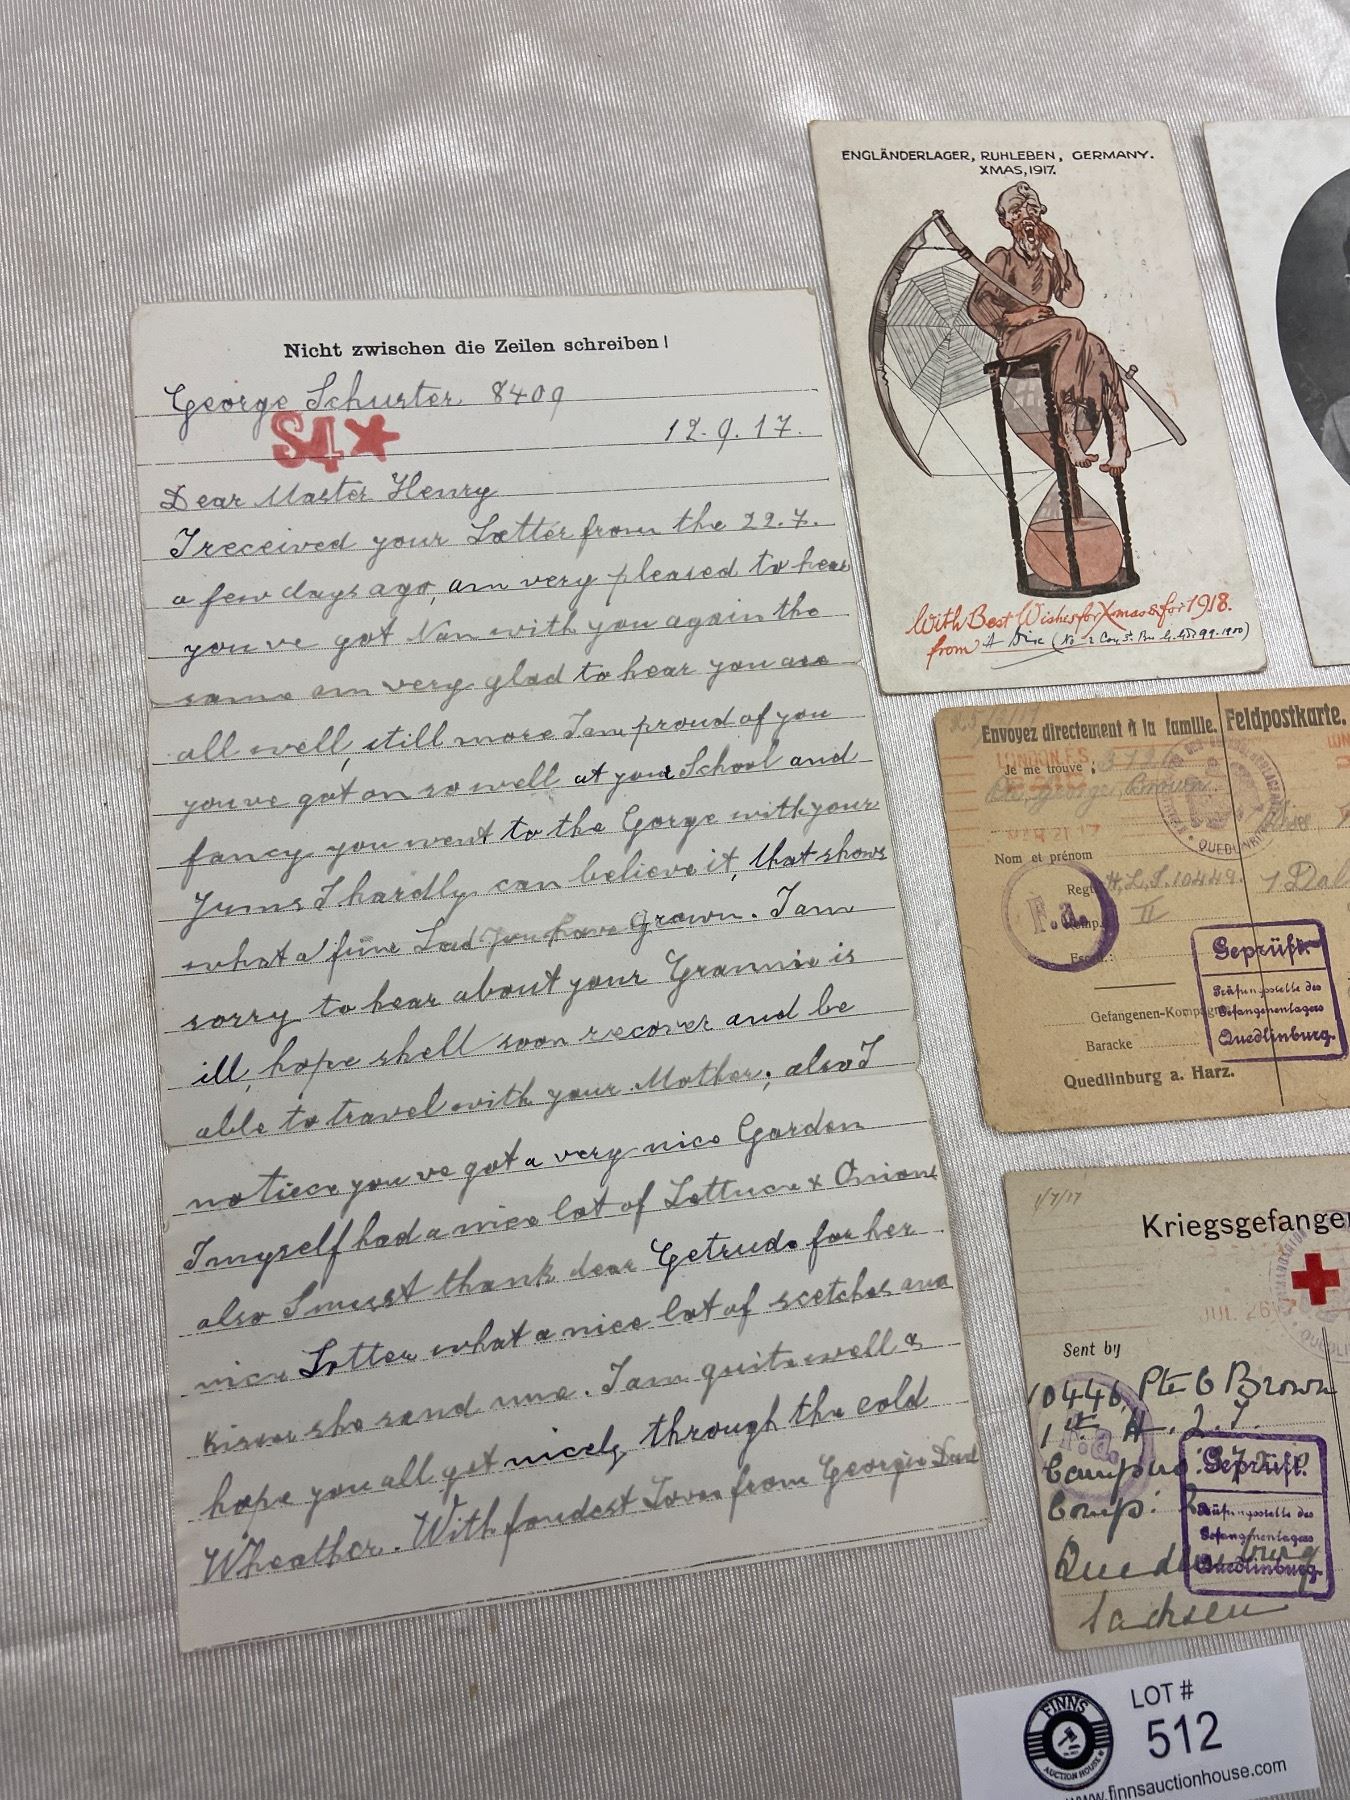 Nicht zwischen die Zeilen schreiben!
George Schuster 8409
S4★
12.9.17.
Dear Master Henry
I received your Letter from the 22.7.
a few days ago, am very pleased to hear
you ve got Nan with you again the
same am very glad to hear you are
all well, still more I am proud of you
you ve got on so well at your School and
fancy you went to the Gorge with your
I hardly can believe it, that shows
what a fine Lad you have Grown. I am
sorry to hear about your Grannie is
ill, hope shell soon recover and be
able to travel with your Mother; also I
notiece you ve got a very nice Garden
I myself had a nice lot of Lettuce & Onions
also I must thank dear Getrude for her
nice Letter what a nice lot of scetches and
she send me. I am quite well &
hope you all get nicely through the cold
Wheather. With fondest Love from George Dad
ENGLÄNDERLAGER, RUHLEBEN, GERMANY.
XMAS, 1917.
With Best Wishes for Xmas & for 1918.
from
Envoyez directement à la famille.
Feldpostkarte.
Je me trouve :
George Brown
Nom et prénom
Regt. H.L.I. 10449.
Komp. II
F.a.
QUEDLINBURG
Geprüft.
Prüfungsstelle des
Gefangenenlagers
Quedlinburg.
Gefangenen-Kompagnie
Baracke
Quedlinburg a. Harz.
1/7/17
Kriegsgefangen
JUL 26 17
Sent by
10446 Pte G Brown
F.a.
Geprüft.
Prüfungsstelle des
Gefangenenlagers
Quedlinburg.
Comp: 2
Quedlinburg
Sachsen
FINNS
AUCTION HOUSE
LOT #
512
www.finnsauctionhouse.com